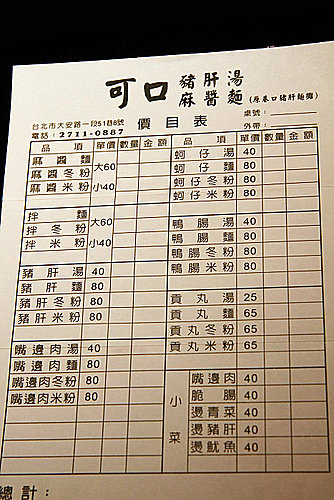 可口 豬肝湯
麻醬麵
(原巷口豬肝麵攤)
台北市大安路一段51巷8號
電話：2711-0887
價目表
桌號：
外帶：
品項 單價 數量 金額
麻醬麵 大60
麻醬冬粉
麻醬米粉 小40
拌麵 大60
拌冬粉
拌米粉 小40
豬肝湯 40
豬肝麵 80
豬肝冬粉 80
豬肝米粉 80
嘴邊肉湯 40
嘴邊肉麵 80
嘴邊肉冬粉 80
嘴邊肉米粉 80
品項 單價 數量 金額
蚵仔湯 40
蚵仔麵 80
蚵仔冬粉 80
蚵仔米粉 80
鴨腸湯 40
鴨腸麵 80
鴨腸冬粉 80
鴨腸米粉 80
貢丸湯 25
貢丸麵 65
貢丸冬粉 65
貢丸米粉 65
小菜
嘴邊肉 40
脆腸 40
燙青菜 40
燙豬肝 40
燙魷魚 40
總計：